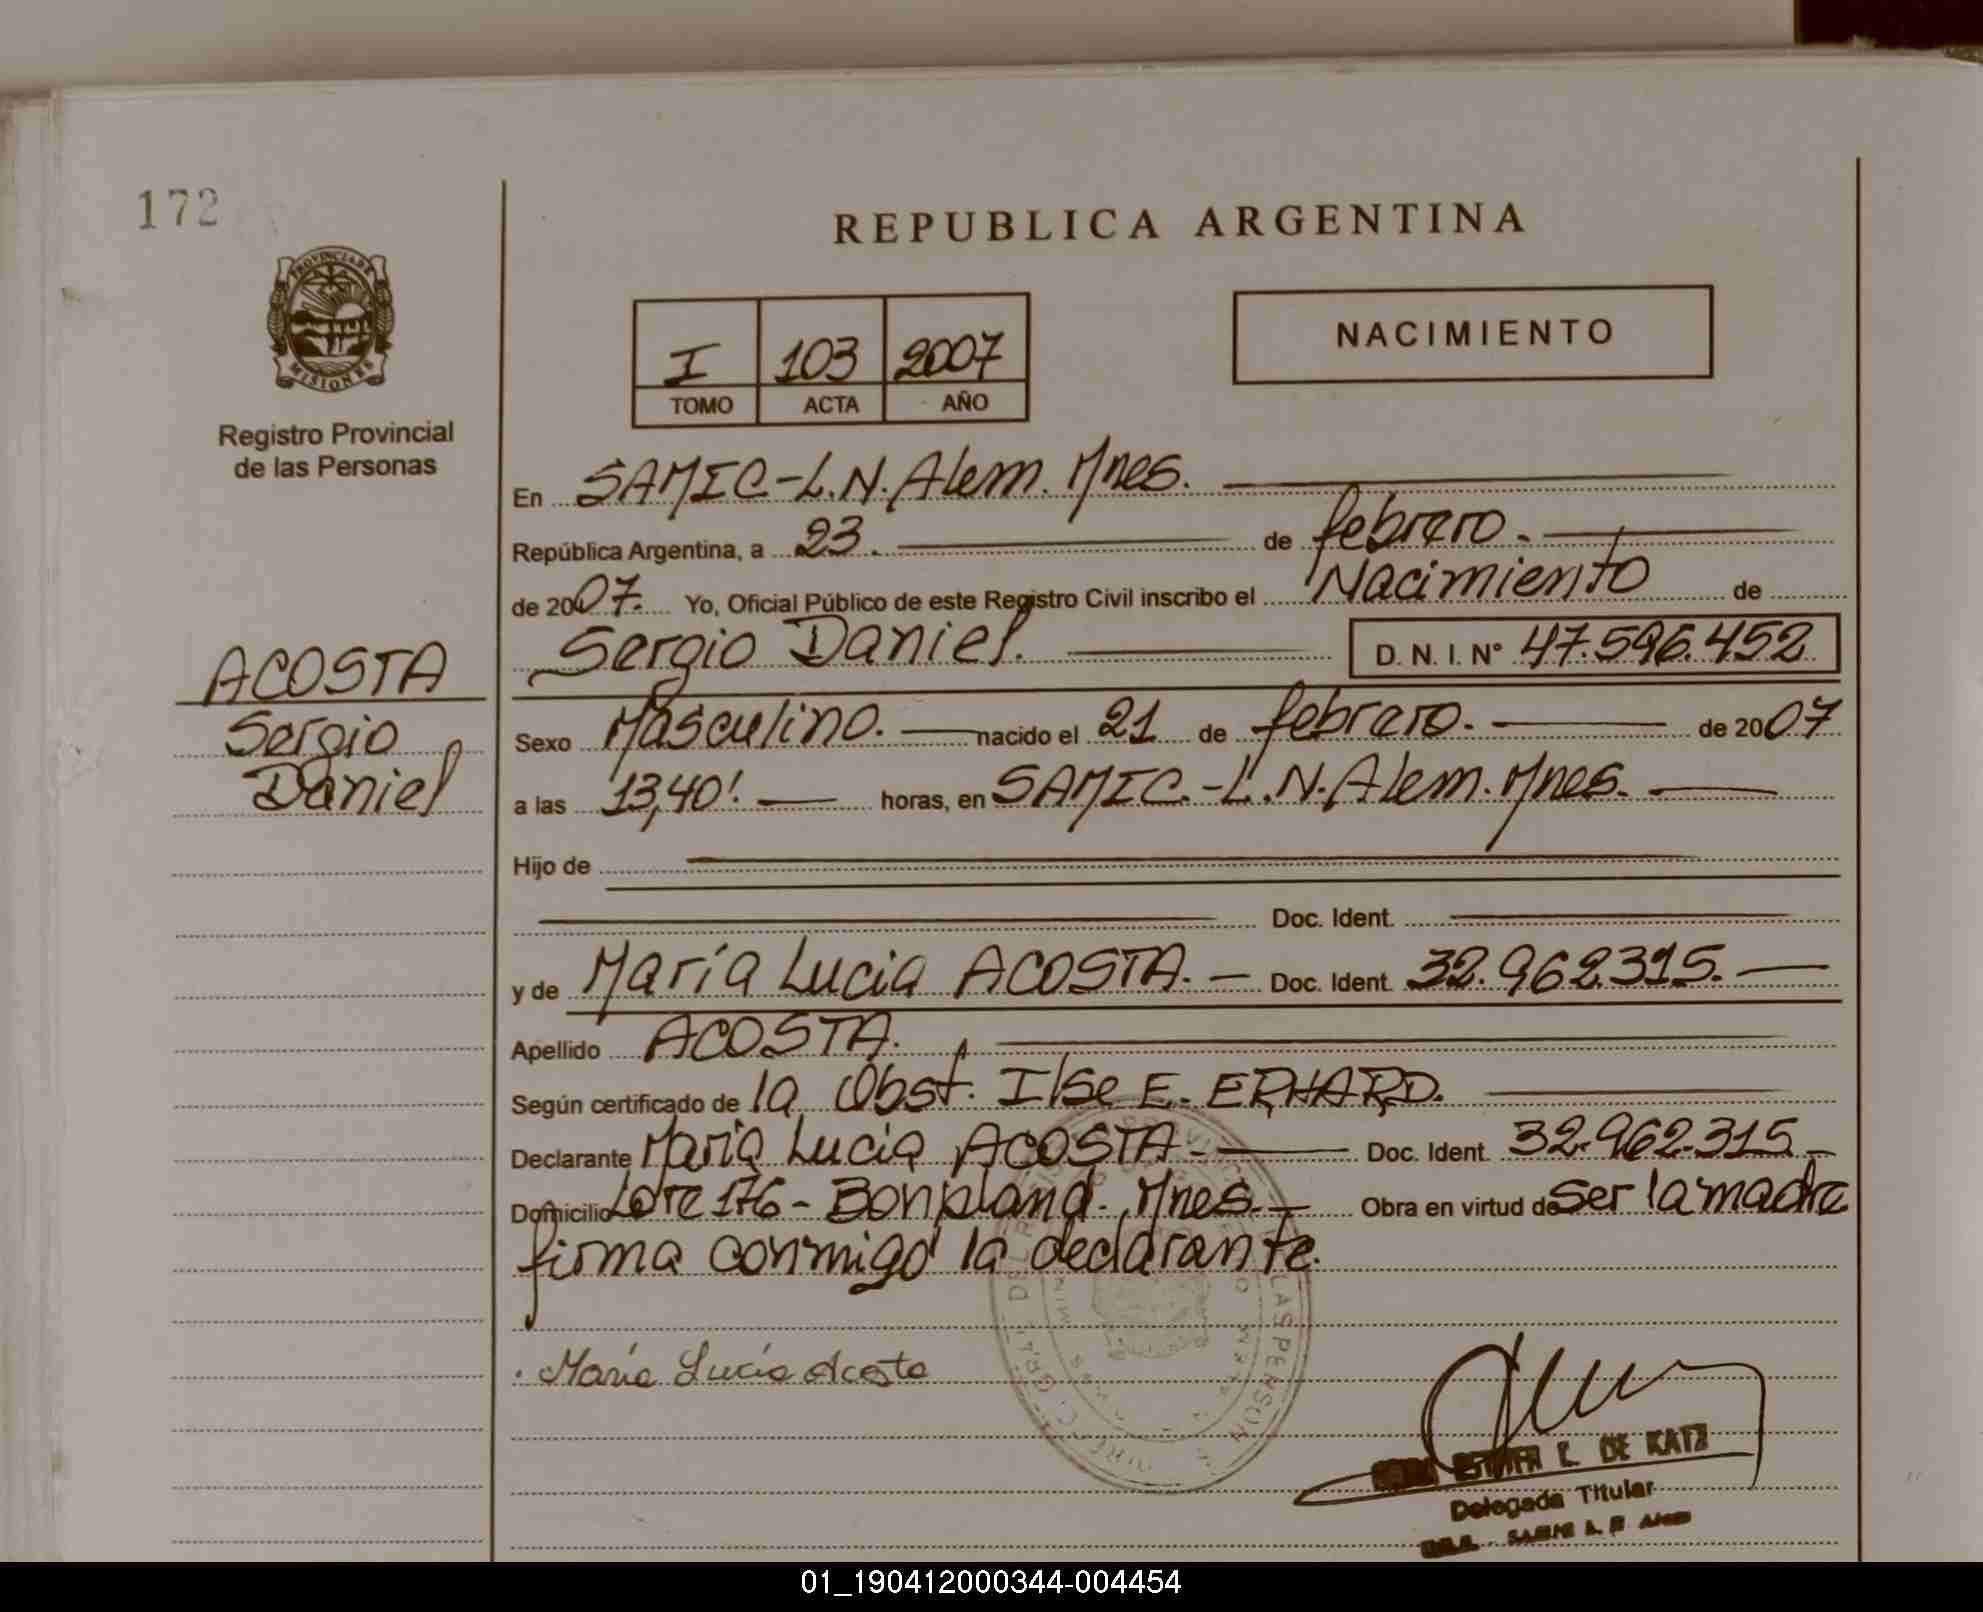 172
REPUBLICA ARGENTINA
PROVINCIA DE
MISIONES
Registro Provincial
de las Personas
I 103 2007
TOMO ACTA AÑO
NACIMIENTO
En SAMIC-L.N. Alem. Mnes.
República Argentina, a 23. de febrero.
de 2007. Yo, Oficial Público de este Registro Civil inscribo el Nacimiento de
Sergio Daniel. D. N. I. N° 47.596.452
ACOSTA
Sergio
Daniel
Sexo Masculino. nacido el 21 de febrero. de 2007
a las 13,40'. horas, en SAMIC.-L.N. Alem. Mnes.
Hijo de
Doc. Ident.
y de María Lucia ACOSTA. Doc. Ident. 32.962.315.
Apellido ACOSTA.
Según certificado de la Obst. Ilse E. ERHARD.
Declarante María Lucia ACOSTA- Doc. Ident. 32.962.315
Domicilio Lote 176- Bonpland. Mnes. Obra en virtud de ser la madre
firma conmigo la declarante.
María Lucía Acosta
L. DE KATZ
Delegada Titular
01_190412000344-004454